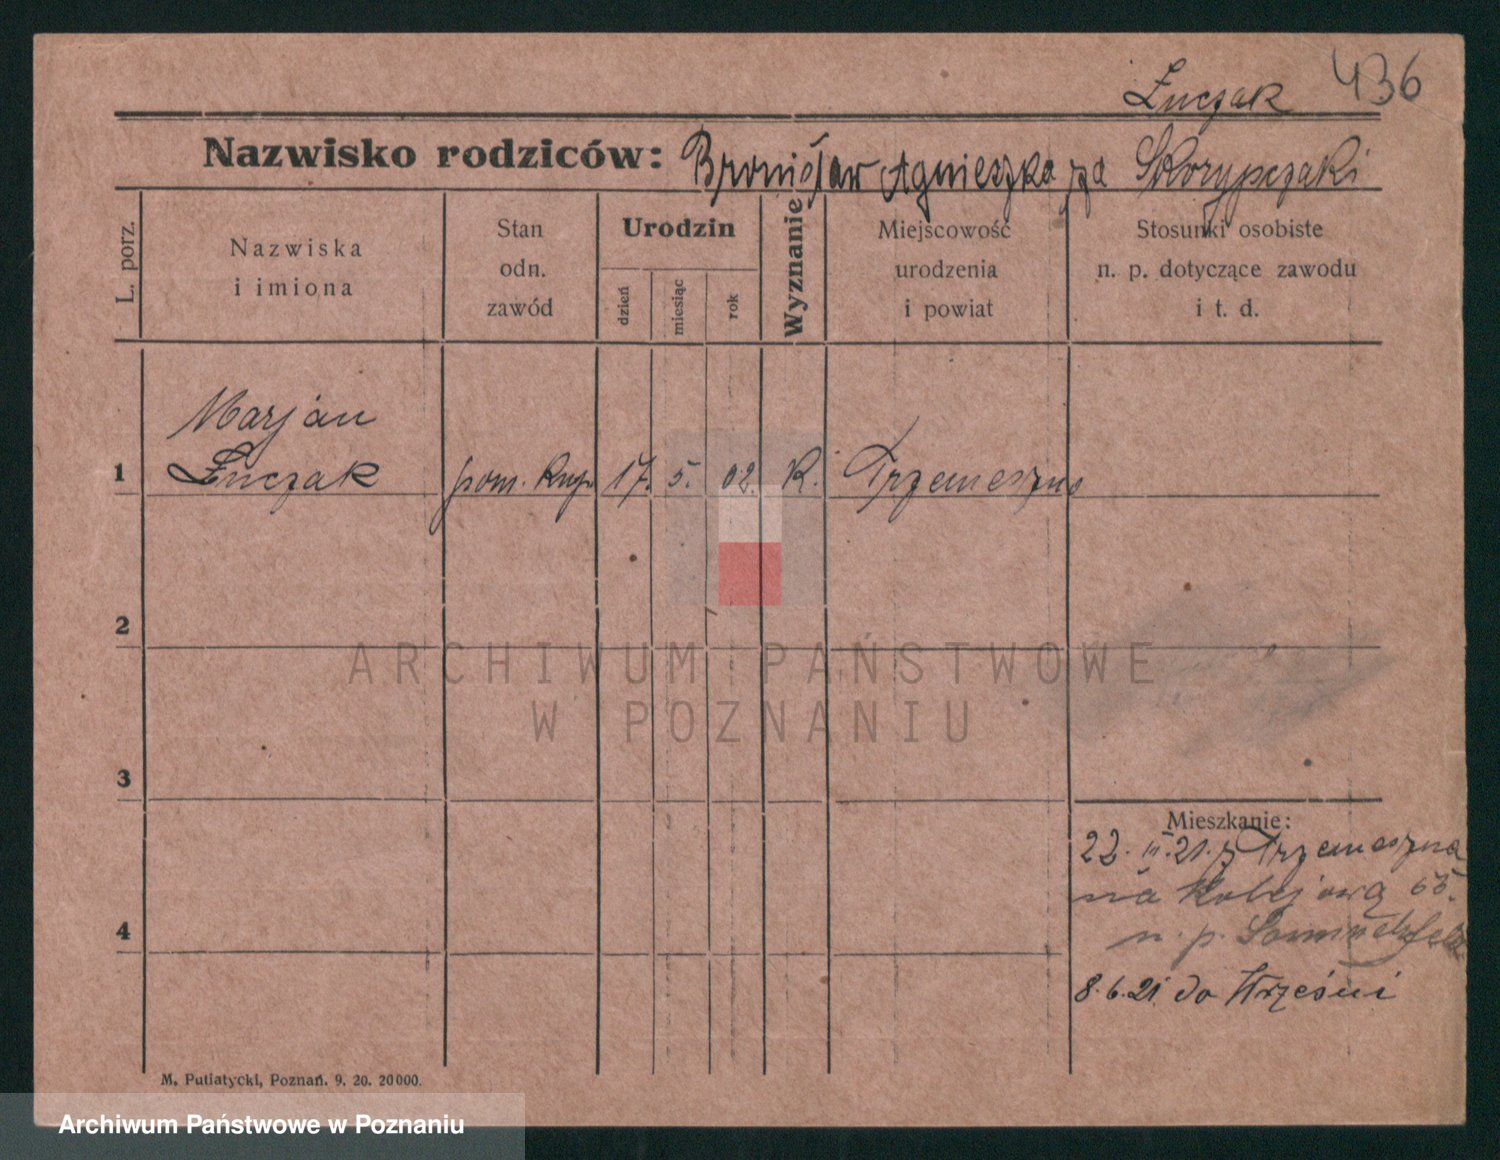 436
Łuczak
Nazwisko rodziców: Bronisław Agnieszka za Skorypczaki
L. porz.
Nazwiska
i imiona
Stan
odn.
zawód
Urodzin
dzień
miesiąc
rok
Wyznanie
Miejscowość
urodzenia
i powiat
Stosunki osobiste
n. p. dotyczące zawodu
i t. d.
Marjan
1 Łuczak pom. kup. 17. 5. 02. K. Trzemeszno
2
3
4
Mieszkanie:
22. III. 21. z Trzemeszna
na Kolejową 65.
n. p.
8.6.21 do Wrześni
M. Putiatycki, Poznań. 9. 20. 20000.
ARCHIWUM PAŃSTWOWE
W POZNANIU
Archiwum Państwowe w Poznaniu